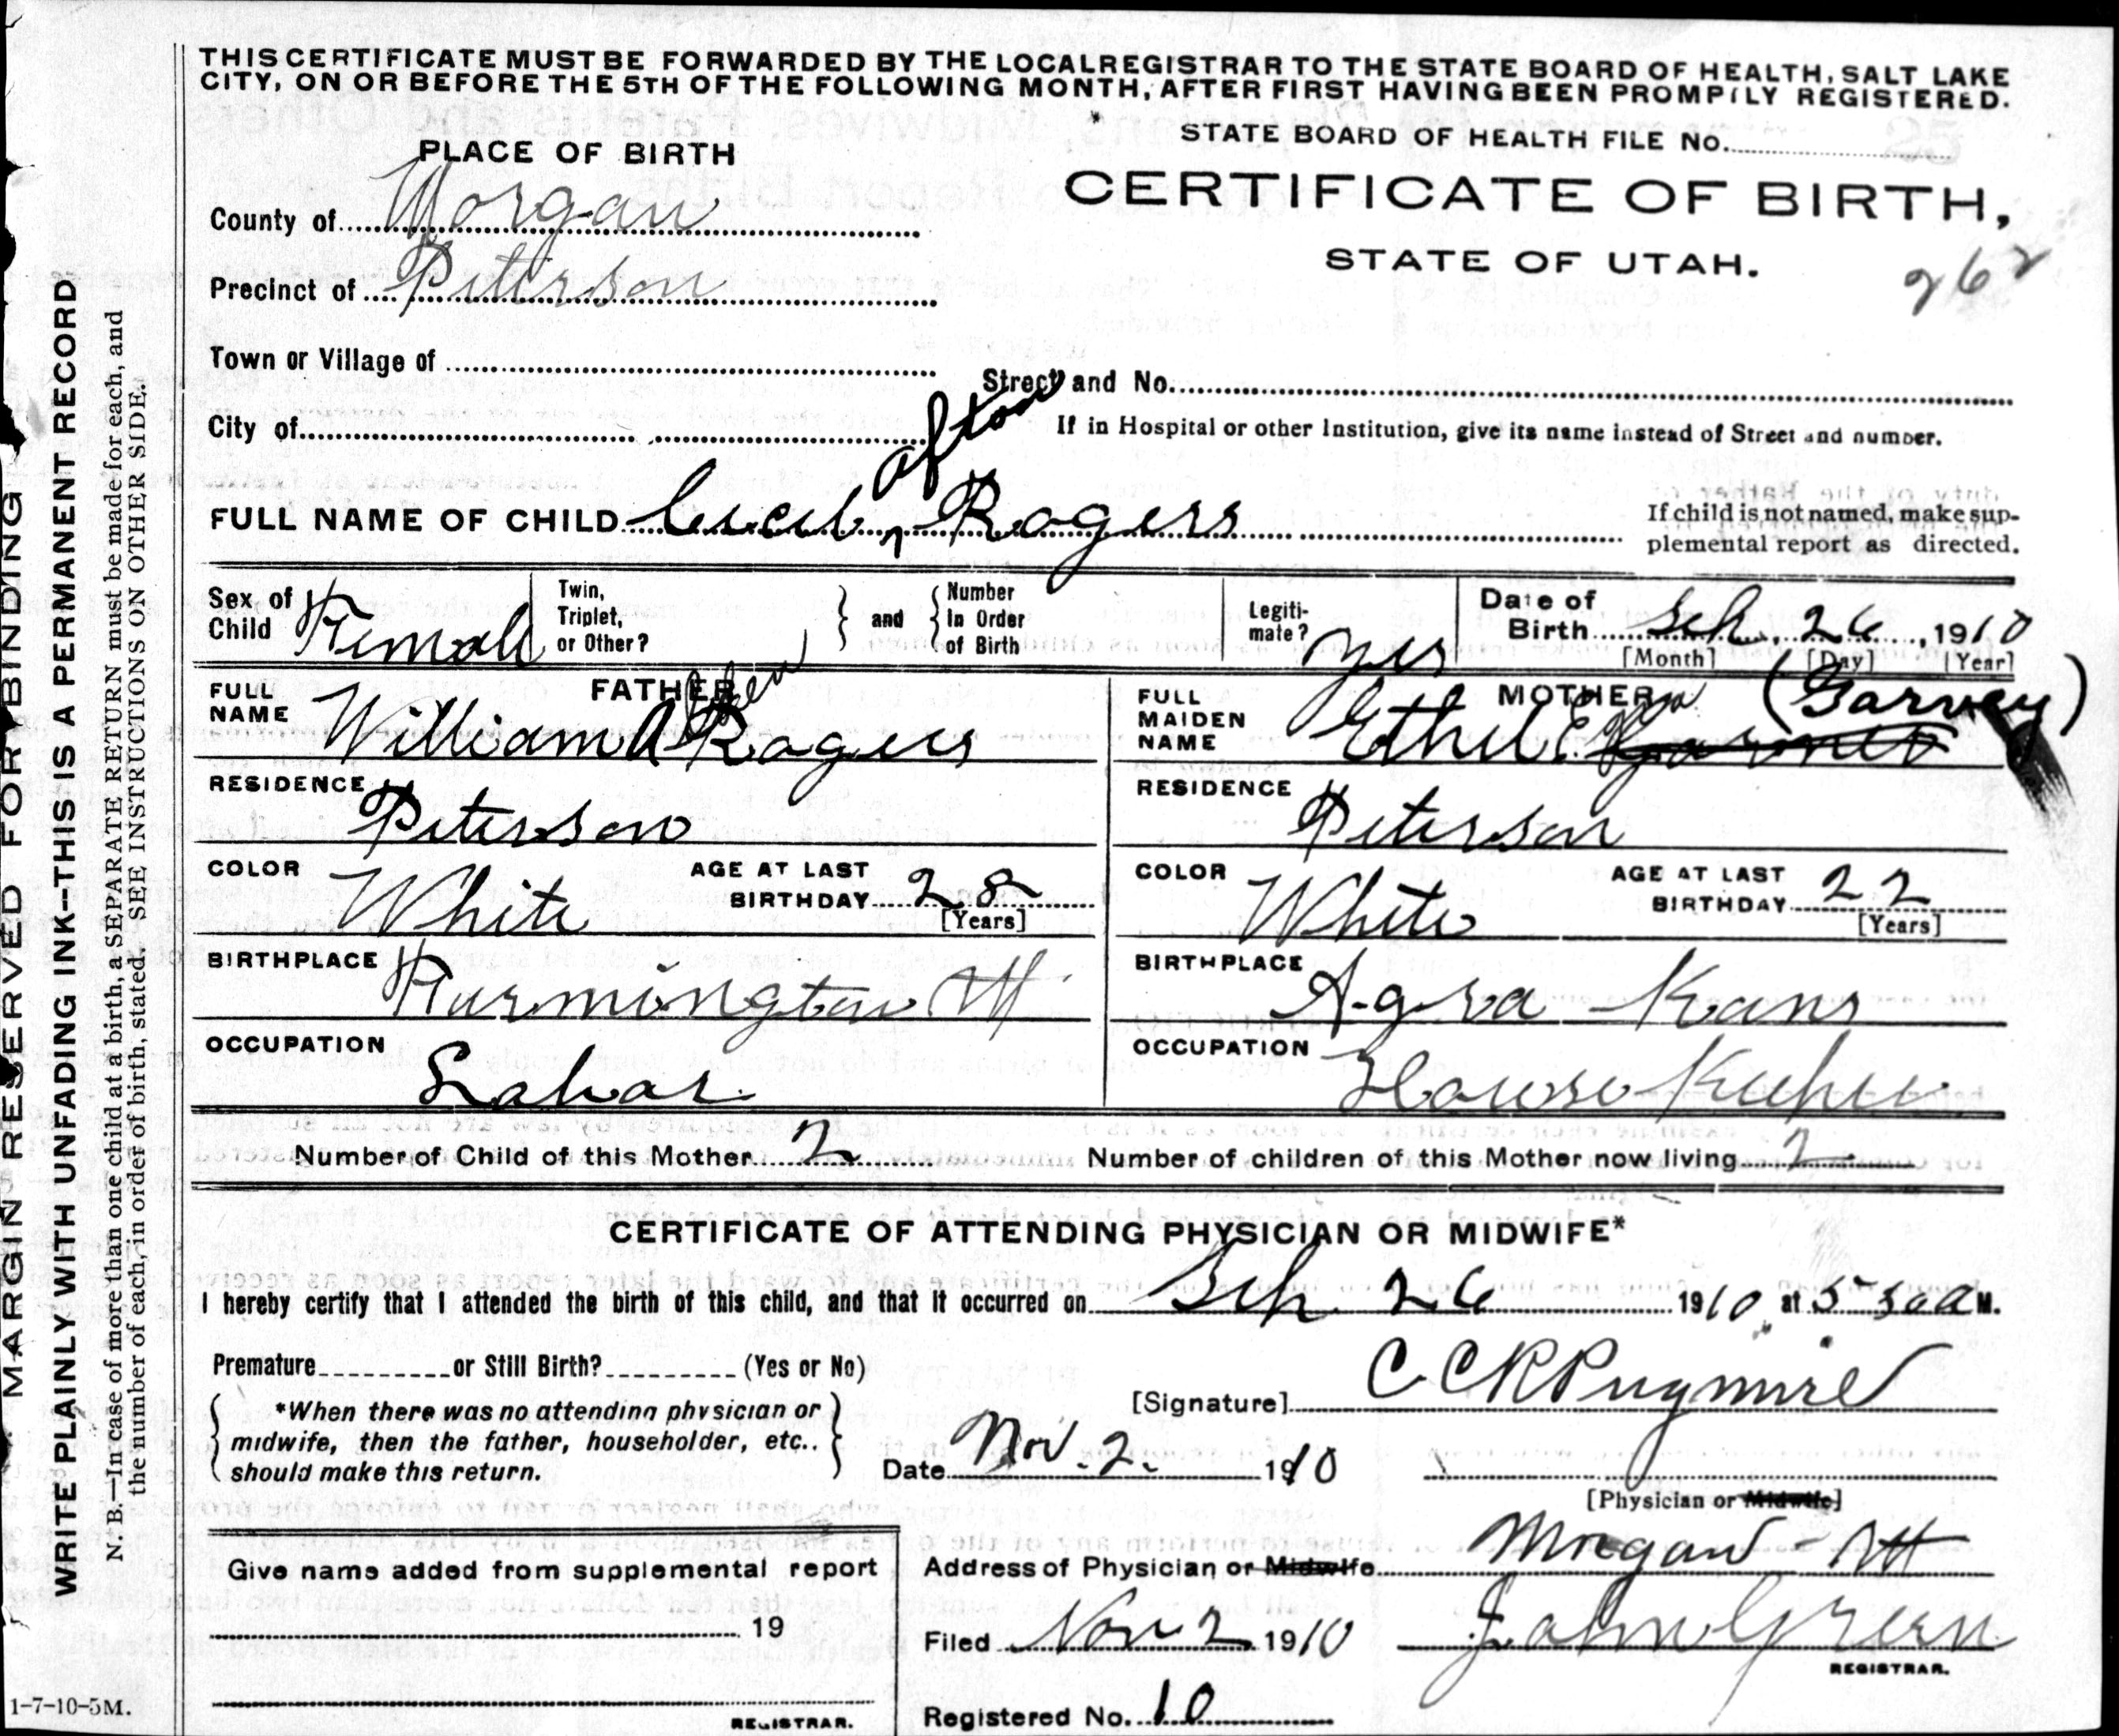 THIS CERTIFICATE MUST BE FORWARDED BY THE LOCAL REGISTRAR TO THE STATE BOARD OF HEALTH, SALT LAKE
CITY, ON OR BEFORE THE 5TH OF THE FOLLOWING MONTH, AFTER FIRST HAVING BEEN PROMPTLY REGISTERED.
STATE BOARD OF HEALTH FILE No.
PLACE OF BIRTH
CERTIFICATE OF BIRTH,
County of Morgan
STATE OF UTAH.
262
Precinct of Peterson
Town or Village of
Street and No.
City of
If in Hospital or other Institution, give its name instead of Street and number.
Afton
FULL NAME OF CHILD Cecil Rogers
If child is not named, make sup-
plemental report as directed.
Sex of Child Femall
Twin, Triplet, or Other?
and
Number In Order of Birth
Legiti-mate? yes
Date of Birth Sep. 26, 1910
[Month] [Day] [Year]
FATHER
FULL NAME William A Rogers
RESIDENCE Peterson
COLOR White
AGE AT LAST BIRTHDAY 28
[Years]
BIRTHPLACE Farmington Ut
OCCUPATION Labor
MOTHER
(Garvey)
FULL MAIDEN NAME Ethel E.
RESIDENCE Peterson
COLOR White
AGE AT LAST BIRTHDAY 22
[Years]
BIRTHPLACE Agra Kans
OCCUPATION House Keeper
Number of Child of this Mother 2
Number of children of this Mother now living 2
CERTIFICATE OF ATTENDING PHYSICIAN OR MIDWIFE*
I hereby certify that I attended the birth of this child, and that it occurred on Sep 26 1910, at 5 30 a M.
Premature or Still Birth? (Yes or No)
[Signature] C C R Pugmire
*When there was no attending physician or
midwife, then the father, householder, etc..
should make this return.
Date Nov. 2. 1910
[Physician or Midwife]
Give name added from supplemental report
19
REGISTRAR.
Address of Physician or Midwife Morgan - Ut
Filed Nov 2 1910 John Green
REGISTRAR.
Registered No. 10
MARGIN RESERVED FOR BINDING
WRITE PLAINLY WITH UNFADING INK--THIS IS A PERMANENT RECORD
N. B.—In case of more than one child at a birth, a SEPARATE RETURN must be made for each, and
the number of each, in order of birth, stated. SEE INSTRUCTIONS ON OTHER SIDE.
1-7-10-5M.